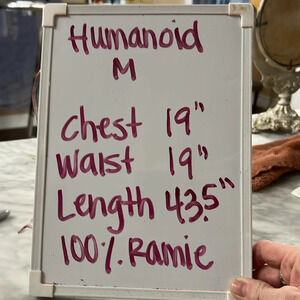 Humanoid
M
Chest 19"
Waist 19"
Length 43.5"
100%. Ramie